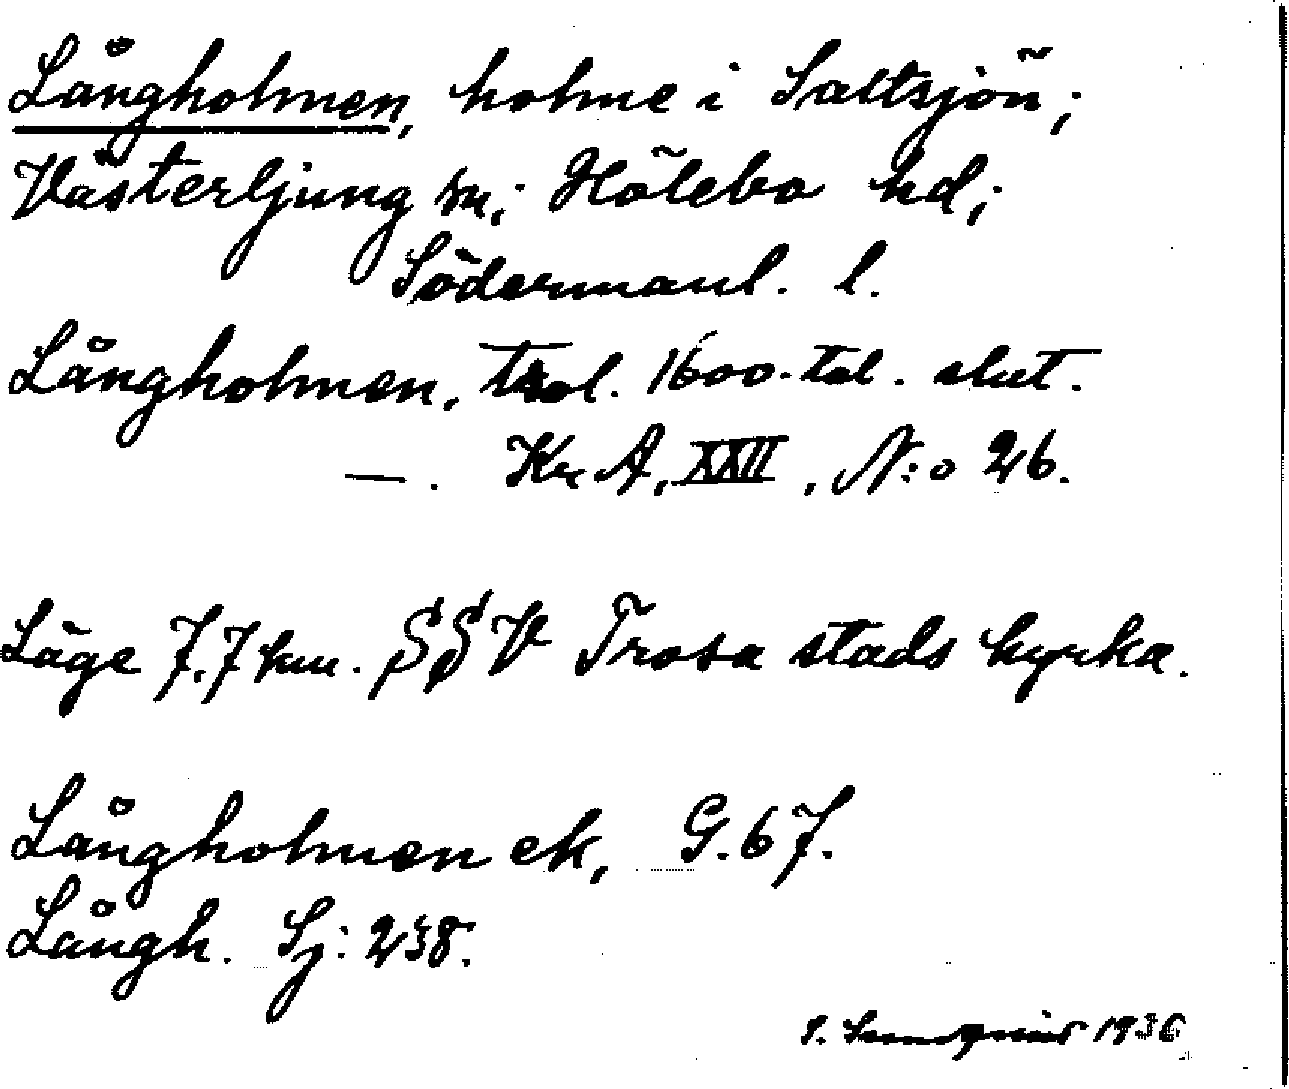 Långholmen, holme i Saltsjön;
Västerljung sn; Hölebo hd;
Södermanl. l.
Långholmen, trol. 1600-tal. slut.
—. Kr A, XXII, N:o 26.
Läge 7.7 km. SSV Trosa stads kyrka.
Långholmen ek, G. 67.
Långh. Sj: 238.
S. 1936